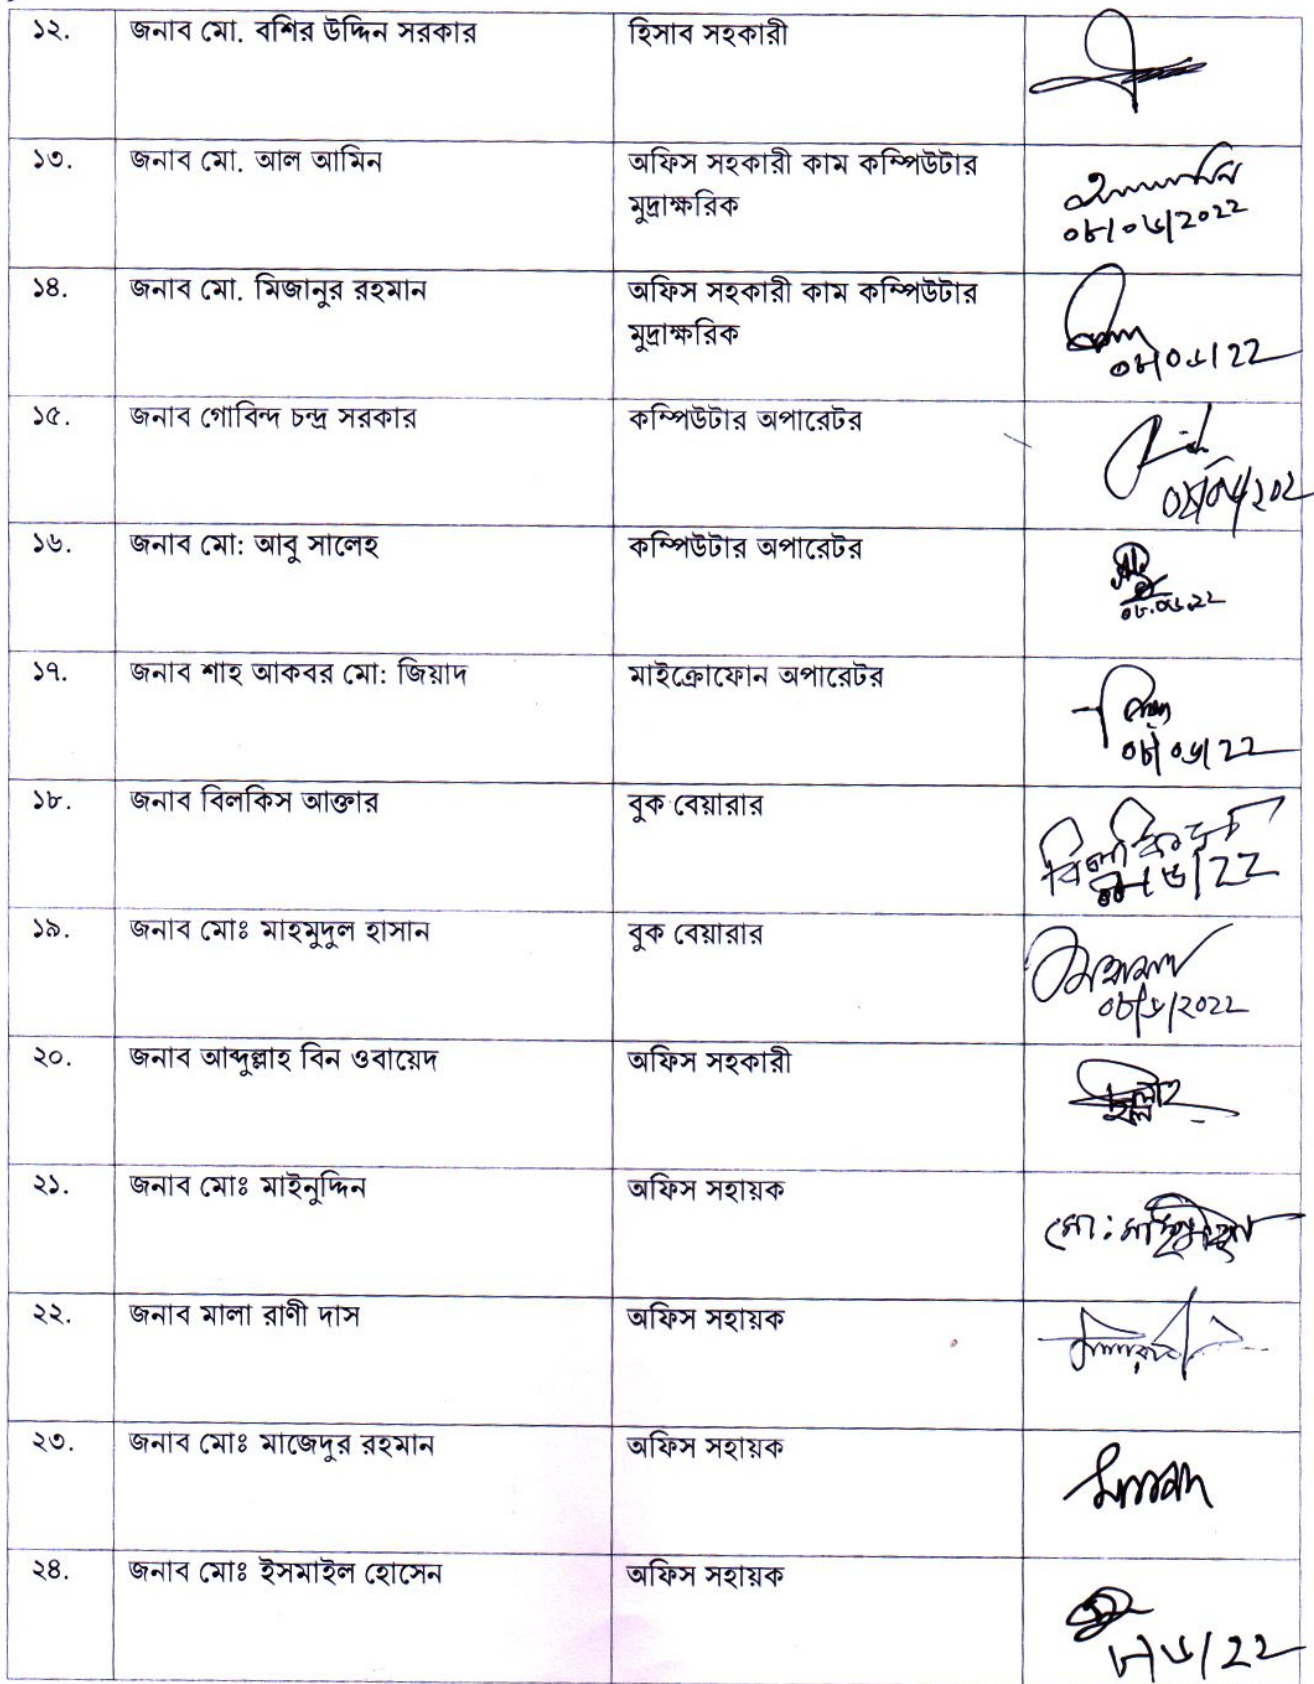 ১২. জনাব মো. বশির উদ্দিন সরকার হিসাব সহকারী
১৩. জনাব মো. আল আমিন অফিস সহকারী কাম কম্পিউটার
মুদ্রাক্ষরিক
০৮/০৬/2022
১৪. জনাব মো. মিজানুর রহমান অফিস সহকারী কাম কম্পিউটার
মুদ্রাক্ষরিক
০৮/০৬/22
১৫. জনাব গোবিন্দ চন্দ্র সরকার কম্পিউটার অপারেটর
১৬. জনাব মো: আবু সালেহ কম্পিউটার অপারেটর
০৮.০৬.২২
১৭. জনাব শাহ আকবর মো: জিয়াদ মাইক্রোফোন অপারেটর
০৮/০৬/22
১৮. জনাব বিলকিস আক্তার বুক বেয়ারার
১৯. জনাব মোঃ মাহমুদুল হাসান বুক বেয়ারার
০৮/৬/2022
২০. জনাব আব্দুল্লাহ বিন ওবায়েদ অফিস সহকারী
২১. জনাব মোঃ মাইনুদ্দিন অফিস সহায়ক
মো:
২২. জনাব মালা রাণী দাস অফিস সহায়ক
২৩. জনাব মোঃ মাজেদুর রহমান অফিস সহায়ক
২৪. জনাব মোঃ ইসমাইল হোসেন অফিস সহায়ক
৮/৬/22